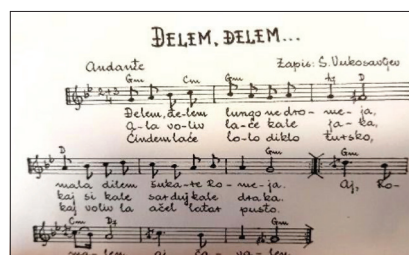 ĐELEM, ĐELEM...
Andante Zapis: S. Vukosavljev
Gm Cm Gm A7 D
2+3
4
Đelem, đe-lem lungo ne dro-me-ja,
a-la vo-liv la-če kale ja-ka,
Čindem lače lo-lo diklo tursko,
D Gm Gm
mala dilem šuka-re Ro-me-ja. Aj, Ro-
kaj si kale sar duj kale draka.
kaj voliv la ačel latar pusto.
Cm D7 Gm
ma-len, aj ča-va-len,